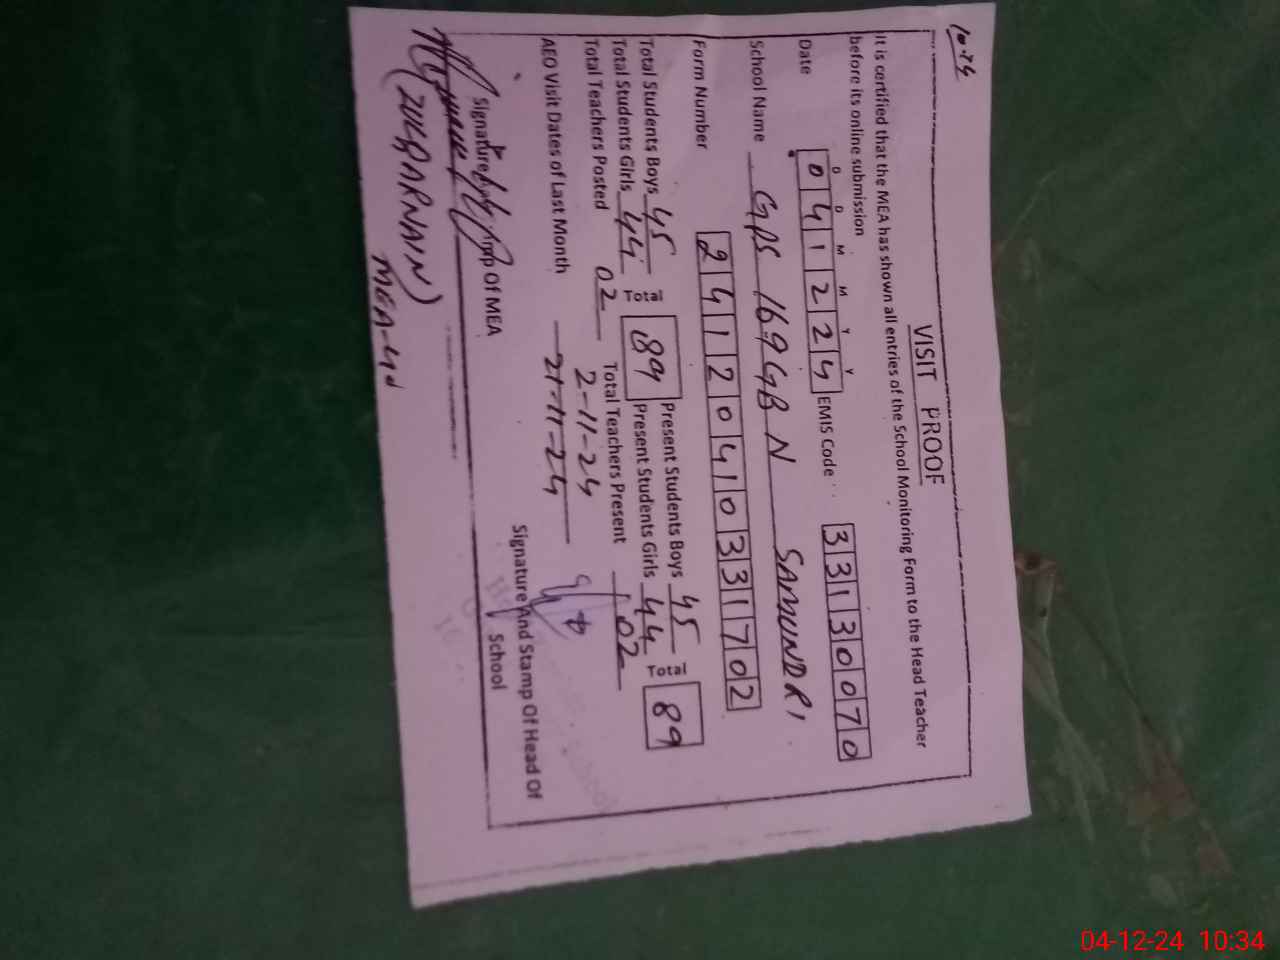 10:24
VISIT PROOF
It is certified that the MEA has shown all entries of the School Monitoring Form to the Head Teacher
before its online submission
D D M M Y Y
Date 041224 EMIS Code 33130070
School Name GPS 169GB N SAMUNDRI
Form Number 24120410331702
Total Students Boys 45 Present Students Boys 45
Total 89 Total 89
Total Students Girls 44 Present Students Girls 44
Total Teachers Posted 02 Total Teachers Present 02
2-11-24
AEO Visit Dates of Last Month 21-11-24
Signature Of MEA
Signature And Stamp Of Head Of
School
(ZULQARNAIN)
MEA-41
04-12-24 10:34